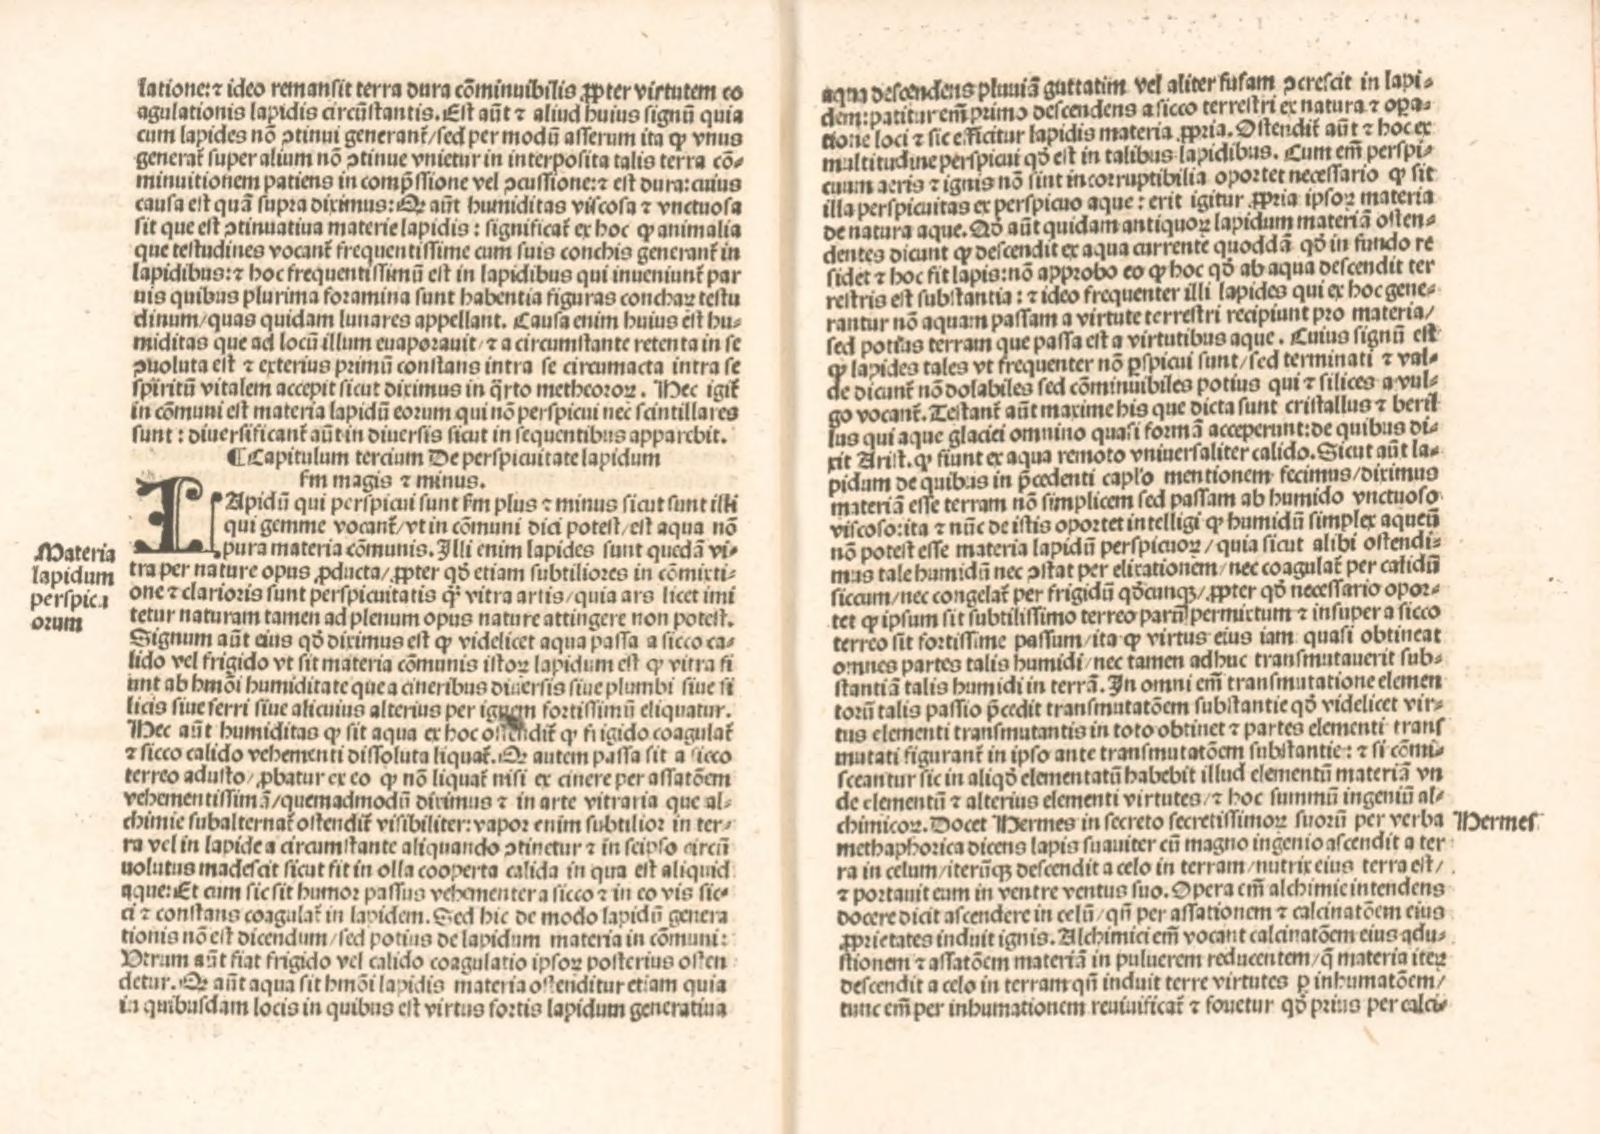 latione:⁊ ideo remansit terra dura cōminuibilis ꝓpter virtutem co
agulationis lapidis circūstantis. Est aūt ⁊ aliud huius signū quia
cum lapides nō ꝯtinui generant̄/sed per modū asserum ita ꝙ vnus
generat̄ super alium nō ꝯtinue vnietur in interposita talis terra cō-
minuitionem patiens in comp̄ssione vel ꝯcussione:⁊ est dura:cuius
causa est quā supra diximus: Qꝛ aūt humiditas viscosa ⁊ vnctuosa
sit que est ꝯtinuatiua materie lapidis : significat̄ ex hoc ꝙ animalia
que testudines vocant̄ frequentissime cum suis conchis generant̄ in
lapidibus:⁊ hoc frequentissimū est in lapidibus qui inueniunt̄ par
uis quibus plurima foramina sunt habentia figuras conchaꝝ testu
dinum/quas quidam lunares appellant. Causa enim huius est hu-
miditas que ad locū illum euaporauit/⁊ a circumstante retenta in se
ꝯuoluta est ⁊ exterius primū constans intra se circumacta intra se
spiritū vitalem accepit sicut diximus in q̄rto metheoroꝝ. Hec igit̄
in cōmuni est materia lapidū eorum qui nō perspicui nec scintillares
sunt : diuersificant̄ aūt in diuersis sicut in sequentibus apparebit.
¶Capitulum tercium De perspicuitate lapidum
fm magis ⁊ minus.
LApidū qui perspicui sunt fm plus ⁊ minus sicut sunt isti
qui gemme vocant̄/vt in cōmuni dici potest/est aqua nō
pura materia cōmunis. Illi enim lapides sunt quedā vi-
Materia
lapidum
perspicu
orum
tra per nature opus ꝓducta/ꝓpter qd̄ etiam subtiliores in cōmixti-
one ⁊ clarioris sunt perspicuitatis q̄ꝫ vitra artis/quia ars licet imi
tetur naturam tamen ad plenum opus nature attingere non potest.
Signum aūt eius qd̄ diximus est ꝙ videlicet aqua passa a sicco ca-
lido vel frigido vt sit materia cōmunis istoꝝ lapidum est ꝙ vitra fi
unt ab hmōi humiditate que a cineribus diuersis siue plumbi siue si
licis siue ferri siue alicuius alterius per ignem fortissimū eliquatur.
Hec aūt humiditas ꝙ sit aqua ex hoc ostendit̄ ꝙ frigido coagulat̄
⁊ sicco calido vehementi dissoluta liquat̄. Qꝛ autem passa sit a sicco
terreo adusto/ꝓbatur ex eo ꝙ nō liquat̄ nisi ex cinere per assatōem
vehementissimā/quemadmodū diximus ⁊ in arte vitraria que al-
chimie subalternat̄ ostendit̄ visibiliter: vapor enim subtilior in ter-
ra vel in lapide a circumstante aliquando ꝯtinetur ⁊ in seipso circū
uolutus madescit sicut fit in olla cooperta calida in qua est aliquid
aque:Et cum sic sit humor passus vehementer a sicco ⁊ in eo vis sic-
ci ⁊ constans coagulat̄ in lapidem. Sed hic de modo lapidū genera
tionis nō est dicendum/sed potius de lapidum materia in cōmuni:
Vtrum aūt fiat frigido vel calido coagulatio ipsoꝝ posterius osten
detur. Qꝛ aūt aqua sit hmōi lapidis materia ostenditur etiam quia
in quibusdam locis in quibus est virtus fortis lapidum generatiua
aqua descendens pluuiā guttatim vel aliter fusam ꝯcrescit in lapi-
dem:patitur em̄ primo descendens a sicco terrestri ex natura ⁊ oꝑa-
tione loci ⁊ sic efficitur lapidis materia ꝓpria. Ostendit̄ aūt ⁊ hoc ex
multitudine perspicui qd̄ est in talibus lapidibus. Cum em̄ perspi-
cuum aeris ⁊ ignis nō sint incorruptibilia oportet necessario ꝙ sit
illa perspicuitas ex perspicuo aque : erit igitur ꝓpria ipsoꝝ materia
de natura aque. Qd̄ aūt quidam antiquoꝝ lapidum materiā osten-
dentes dicunt ꝙ descendit ex aqua currente quoddā qd̄ in fundo re
sidet ⁊ hoc fit lapis:nō approbo eo ꝙ hoc qd̄ ab aqua descendit ter
restris est substantia : ⁊ ideo frequenter illi lapides qui ex hoc gene-
rantur nō aquam passam a virtute terrestri recipiunt pro materia/
sed potius terram que passa est a virtutibus aque . Cuius signū est
ꝙ lapides tales vt frequenter nō ꝑspicui sunt/sed terminati ⁊ val-
de dicunt̄ nō dolabiles sed cōminuibiles potius qui ⁊ silices a vul-
go vocant̄. Testant̄ aūt maxime his que dicta sunt cristallus ⁊ beril
lus qui aque glaciei omnino quasi formā acceperunt:de quibus di-
xit Arist. ꝙ fiunt ex aqua remoto vniuersaliter calido. Sicut aūt la-
pidum de quibus in p̄cedenti cap̄lo mentionem fecimus/diximus
materiā esse terram nō simplicem sed passam ab humido vnctuoso
viscoso:ita ⁊ nūc de istis oportet intelligi ꝙ humidū simplex aqueū
nō potest esse materia lapidū perspicuoꝝ/quia sicut alibi ostendi-
mus tale humidū nec ꝯstat per elixationem/nec coagulat̄ per calidū
siccum/nec congelat̄ per frigidū qd̄cunqꝫ/ꝓpter qd̄ necessario opor-
tet ꝙ ipsum sit subtilissimo terreo parū permixtum ⁊ insuper a sicco
terreo sit fortissime passum/ita ꝙ virtus eius iam quasi obtineat
omnes partes talis humidi/nec tamen adhuc transmutauerit sub-
stantiā talis humidi in terrā. In omni em̄ transmutatione elemen
torū talis passio p̄cedit transmutatōem substantie qd̄ videlicet vir-
tus elementi transmutantis in toto obtinet ⁊ partes elementi trans
mutati figurant̄ in ipso ante transmutatōem substantie : ⁊ si cōmi-
sceantur sic in aliqd̄ elementatū habebit illud elementū materiā vn
de elementū ⁊ alterius elementi virtutes/⁊ hoc summū ingeniū al-
chimicoꝝ. Docet Hermes in secreto secretissimoꝝ suorū per verba
Hermes
methaphorica dicens lapis suauiter cū magno ingenio ascendit a ter
ra in celum/iterūqꝫ descendit a celo in terram/nutrix eius terra est/
⁊ portauit eum in ventre ventus suo. Opera em̄ alchimie intendens
docere dicit ascendere in celū/qn̄ per assationem ⁊ calcinatōem eius
ꝓprietates induit ignis. Alchimici em̄ vocant calcinatōem eius adu-
stionem ⁊ assatōem materiā in puluerem reducentem/q̄ materia iteꝝ
descendit a celo in terram qn̄ induit terre virtutes ꝑ inhumatōem/
tunc em̄ per inhumationem reuiuificat̄ ⁊ fouetur qd̄ prius per calci-